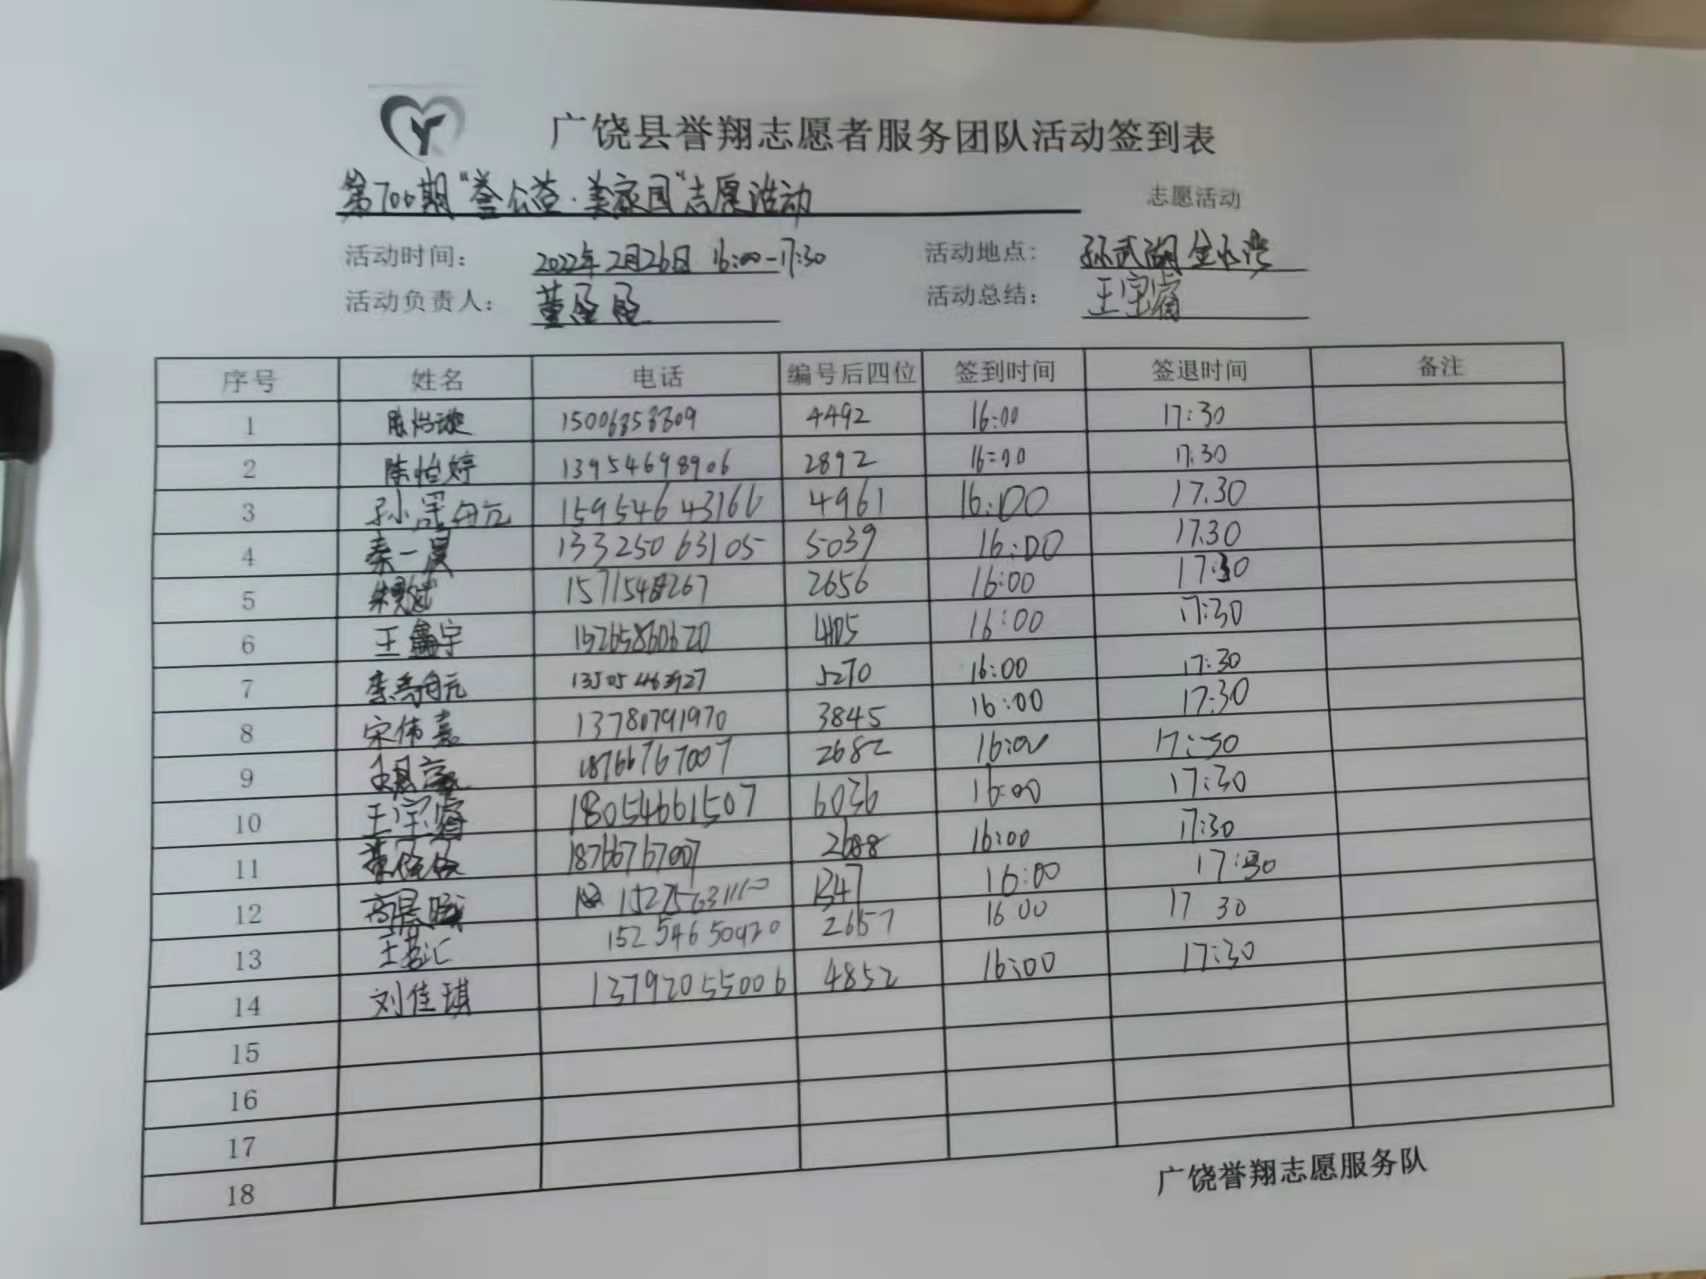 广饶县誉翔志愿者服务团队活动签到表
第700期"誉公益·美家园"志愿活动 志愿活动
活动时间: 2022年2月26日 16:00-17:30 活动地点: 孙武湖金水湾
活动负责人: 董 活动总结: 王宇睿
序号 姓名 电话 编号后四位 签到时间 签退时间 备注
1 陈怡璇 15006858809 4492 16:00 17:30
2 陈怡婷 13954698906 2892 16:00 17:30
3 孙 元 15954643166 4961 16:00 17.30
4 秦一晨 13325063105 5039 16:00 17.30
5 2656 16:00 17:30
6 王鑫宇 15265860620 16:00 17:30
7 李 元 13505463927 5270 16:00 17:30
8 宋伟嘉 13780791970 3845 16:00 17:30
9 18766767007 2682 16:00 17:30
10 王宇睿 18054661507 6036 16:00 17:30
11 18766767007 2688 16:00 17:30
12 高晨 1347 16:00 17:30
13 王若汇 15254650420 2657 16 00 17 30
14 刘佳琪 13792055006 4852 16:00 17:30
15
16
17
18
广饶誉翔志愿服务队